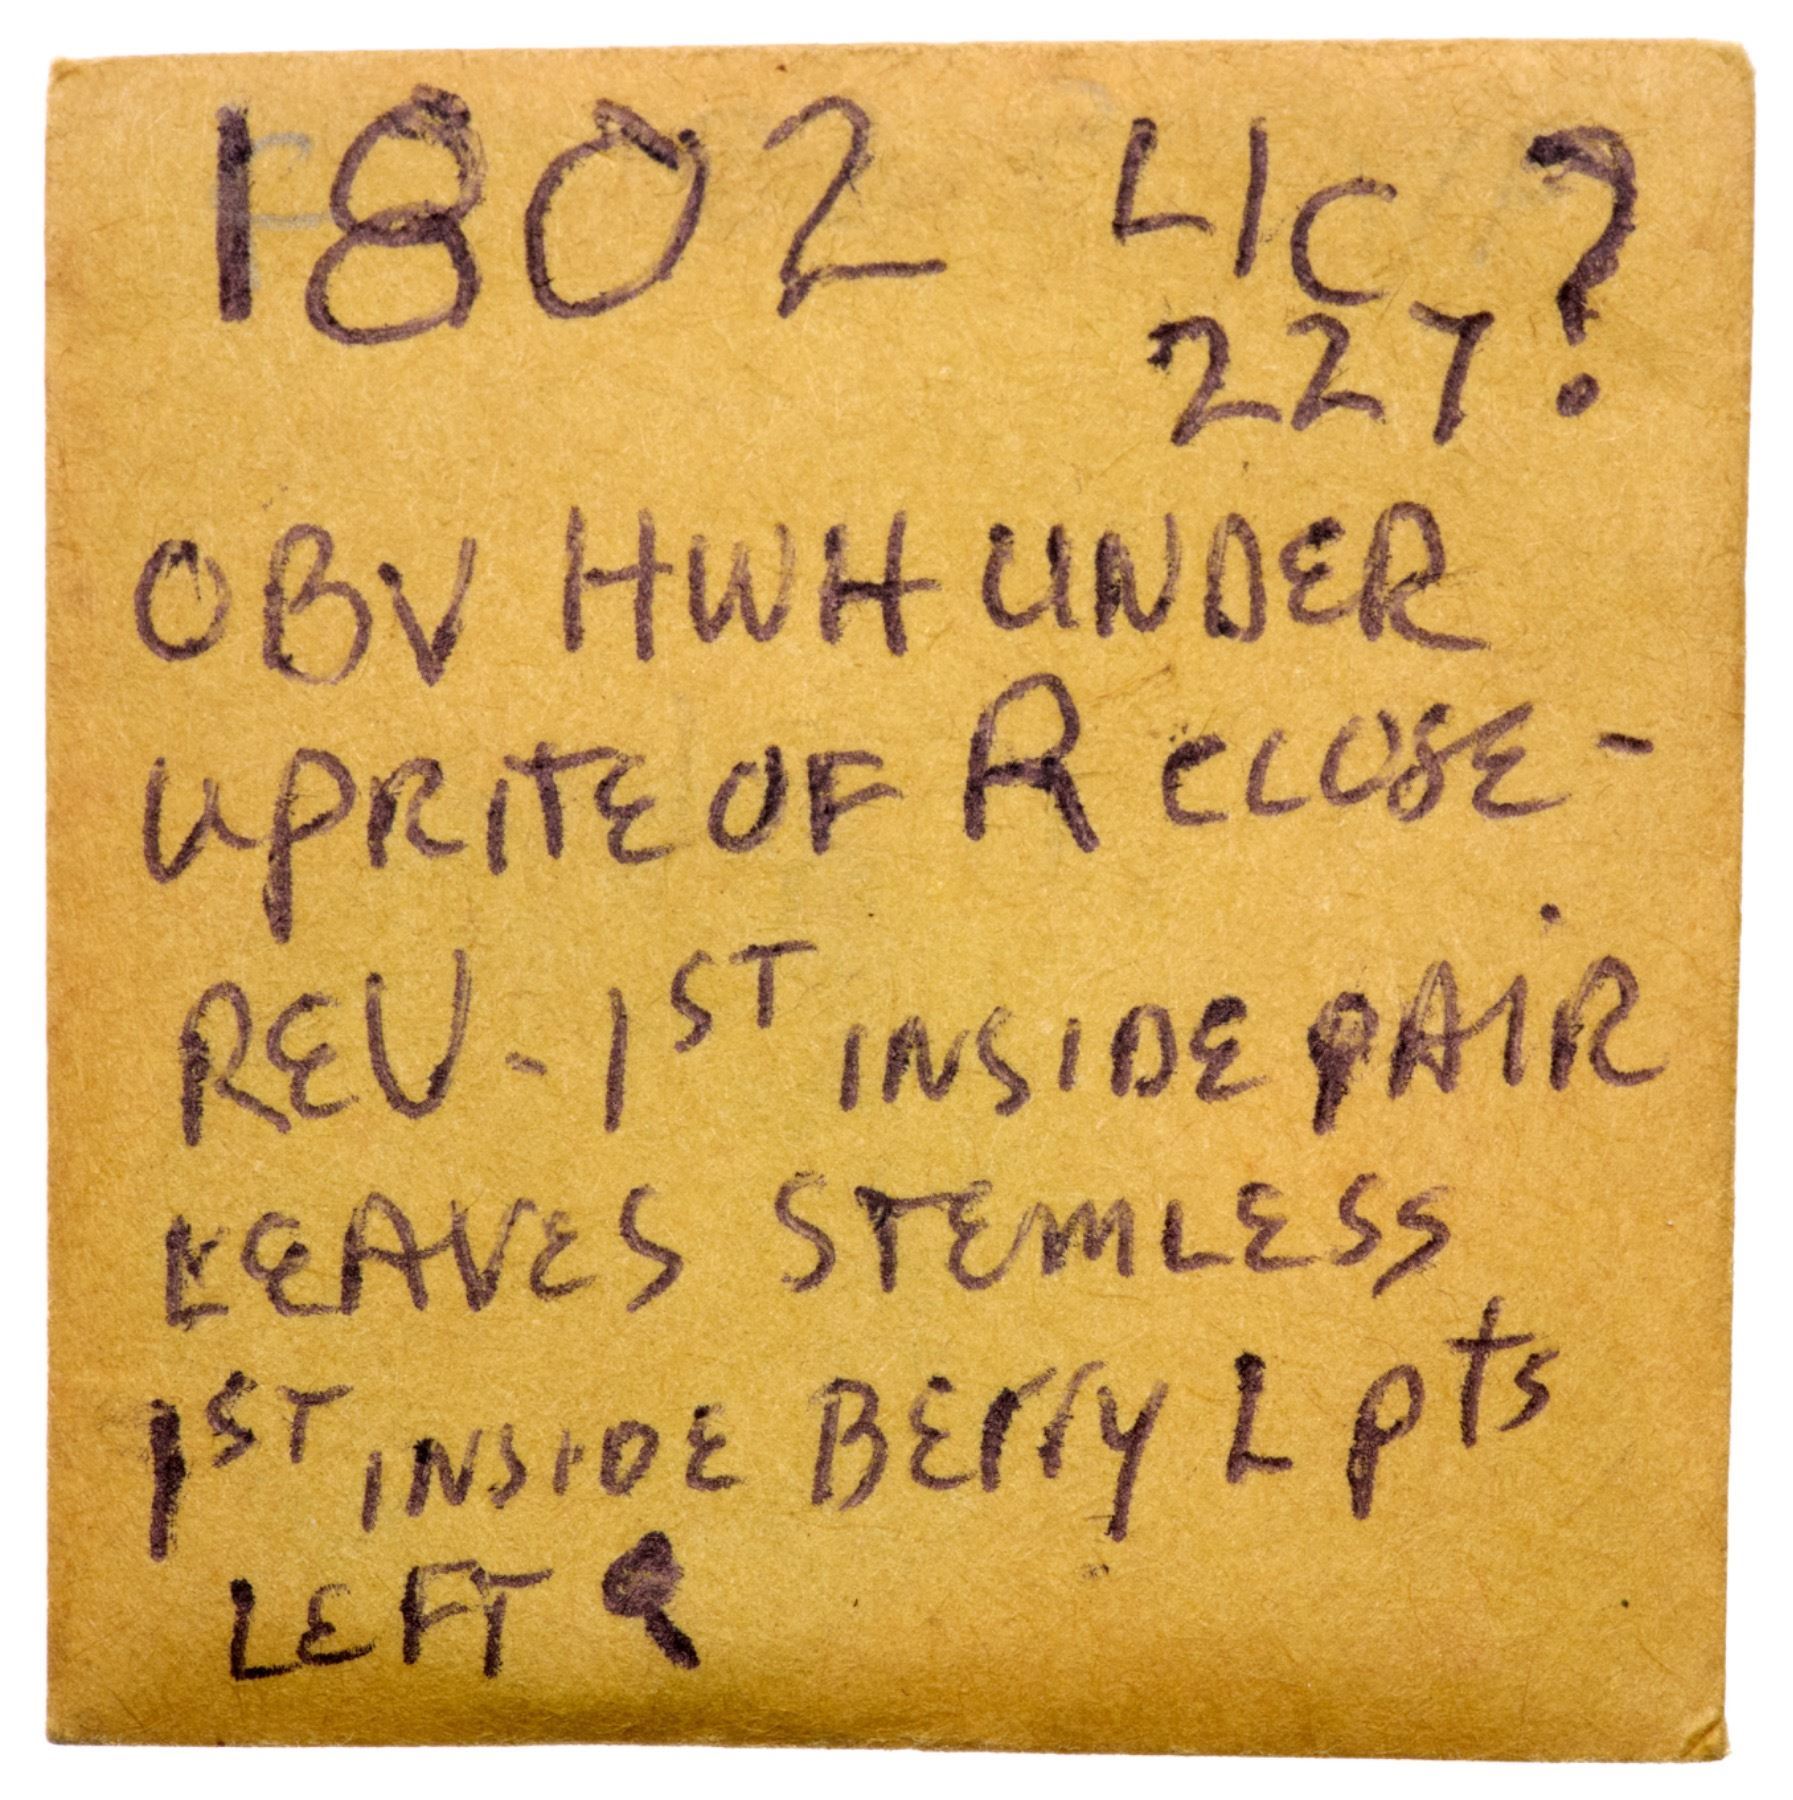 1802 LIC ?
227
OBV HWH UNDER
UPRITE OF R CLOSE -
REV - 1ST INSIDE PAIR
LEAVES STEMLESS
1ST INSIDE Berry L pts
LEFT